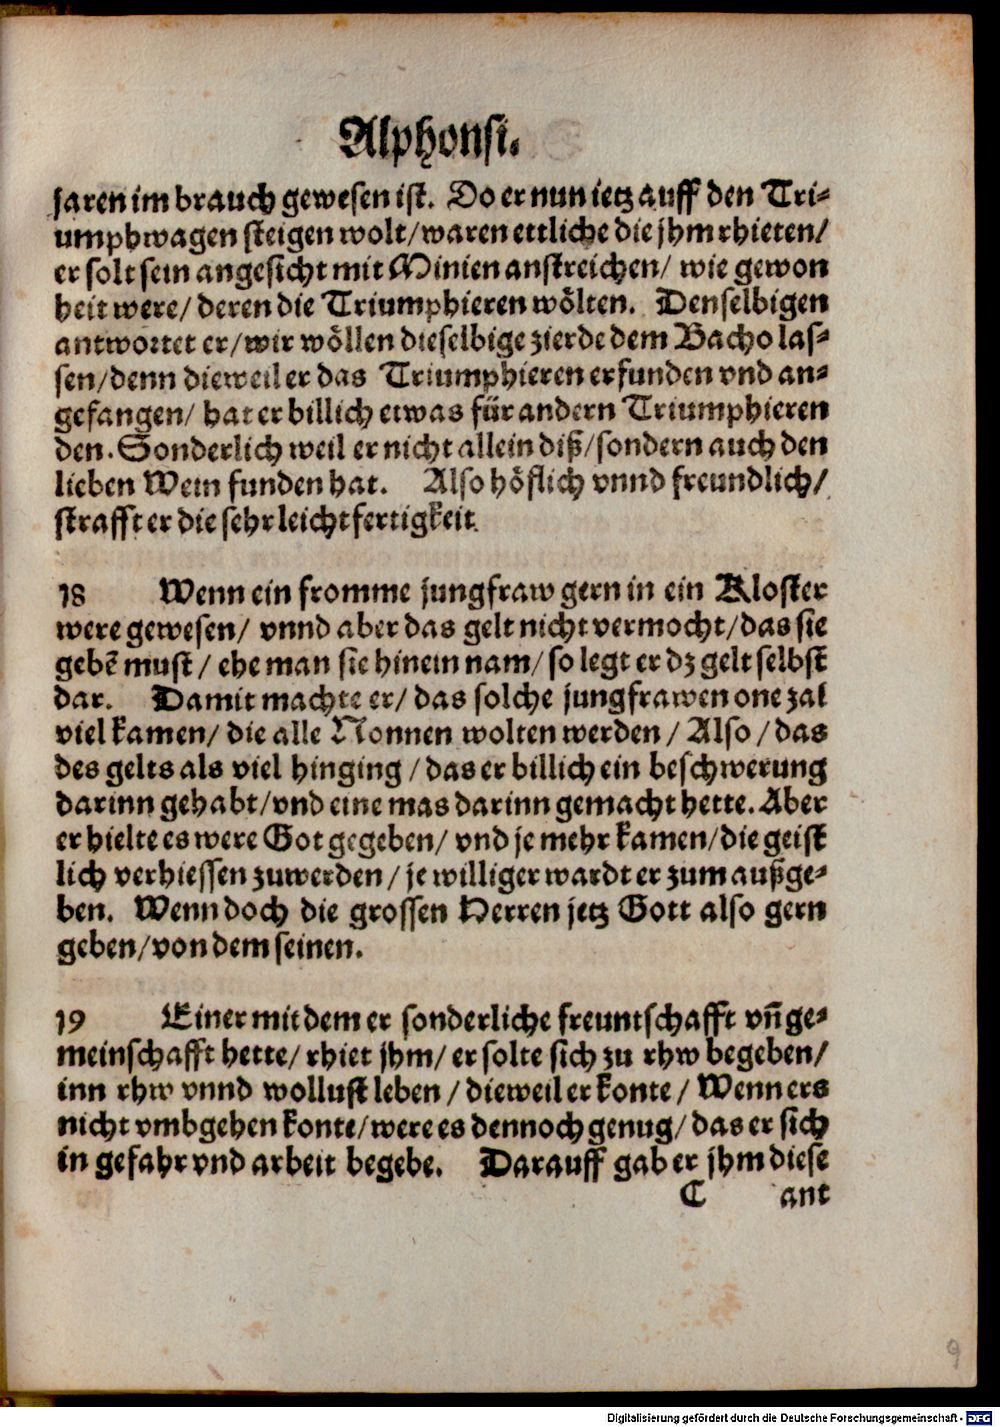 Alphonsi.
saren im brauch gewesen ist. Do er nun ietz auff den Tri-
umphwagen steigen wolt/waren ettliche die jhm rhieten/
er solt sein angesicht mit Minien anstreichen/ wie gewon
heit were/ deren die Triumphieren wölten. Denselbigen
antwortet er/wir wöllen dieselbige zierde dem Bacho las-
sen/denn dieweil er das Triumphieren erfunden vnd an-
gefangen/ hat er billich etwas für andern Triumphieren
den. Sonderlich weil er nicht allein diß/sondern auch den
lieben Wein funden hat. Also höflich vnnd freundlich/
strafft er die sehr leichtfertigkeit.
18 Wenn ein fromme jungfraw gern in ein Kloster
were gewesen/ vnnd aber das gelt nicht vermocht/das sie
gebē must/ ehe man sie hinein nam/so legt er dz gelt selbst
dar. Damit machte er/ das solche jungfrawen one zal
viel kamen/ die alle Nonnen wolten werden/ Also/das
des gelts als viel hinging/das er billich ein beschwerung
darinn gehabt/vnd eine mas darinn gemacht hette. Aber
er hielte es were Got gegeben/ vnd je mehr kamen/die geist
lich verhiessen zuwerden/je williger wardt er zum außge-
ben. Wenn doch die grossen Herren jetz Gott also gern
geben/von dem seinen.
19 Einer mit dem er sonderliche freuntschafft vn̄ ge-
meinschafft hette/ rhiet jhm/er solte sich zu rhw begeben/
inn rhw vnnd wollust leben/dieweil er konte/ Wenn ers
nicht vmbgehen konte/were es dennoch genug/das er sich
in gefahr vnd arbeit begebe. Darauff gab er jhm diese
C ant
9
Digitalisierung gefördert durch die Deutsche Forschungsgemeinschaft - DFG